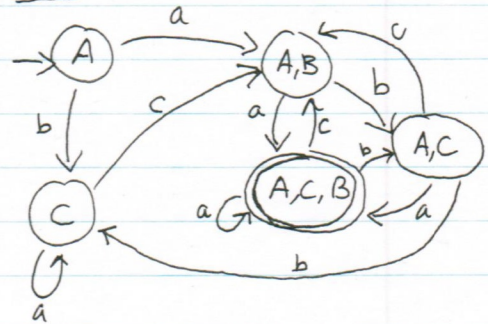 a
A
A,B
c
b
c
a
b
c
b
A,C
C
A,C,B
a
a
b
a